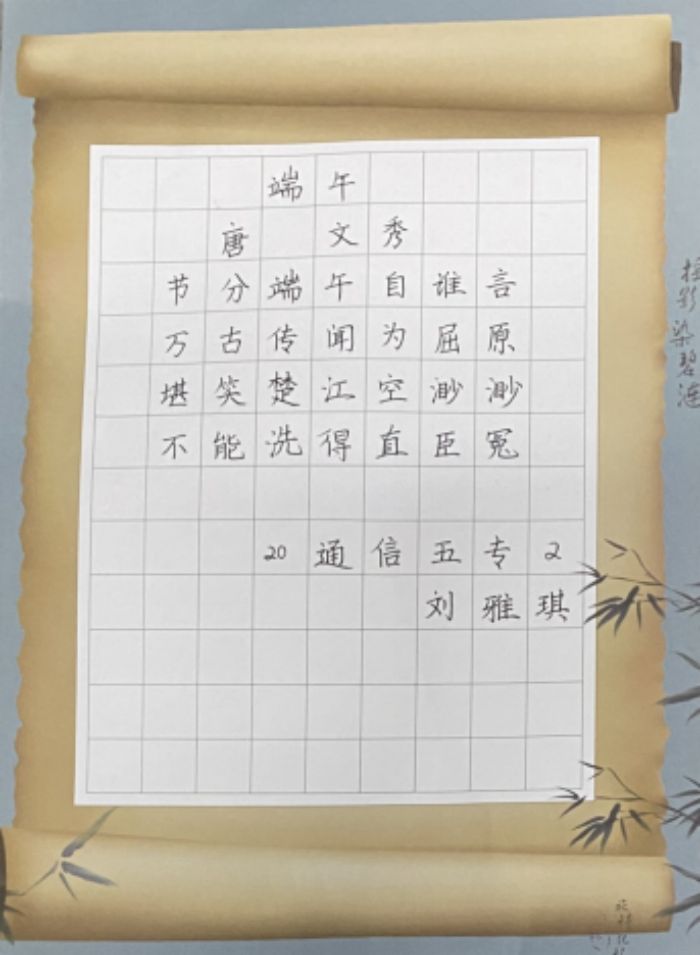 端午
唐 文秀
节分端午自谁言
万古传闻为屈原
堪笑楚江空渺渺
不能洗得直臣冤
20通信五专2
刘雅琪